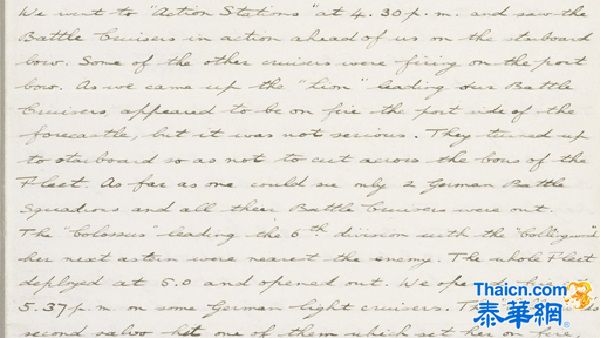 We went to "Action Stations" at 4.30 p.m. and saw the
Battle Cruisers in action ahead of us on the starboard
bow. Some of the other cruisers were firing on the port
bow. As we came up the "Lion" leading our Battle
Cruisers, appeared to be on fire the port side of the
forecastle, but it was not serious. They turned up
to starboard so as not to cut across the bows of the
Fleet. As far as one could see only 2 German Battle
Squadrons and all their Battle Cruisers were out.
The "Colossus" leading the 6th division with the "Collingwood"
her next astern were nearest the enemy. The whole Fleet
deployed at 5.0 and opened out. We
5.37 p.m. on some German light cruisers.
second salvo hit one of them which set her on fire,
Thaicn.com
泰華網